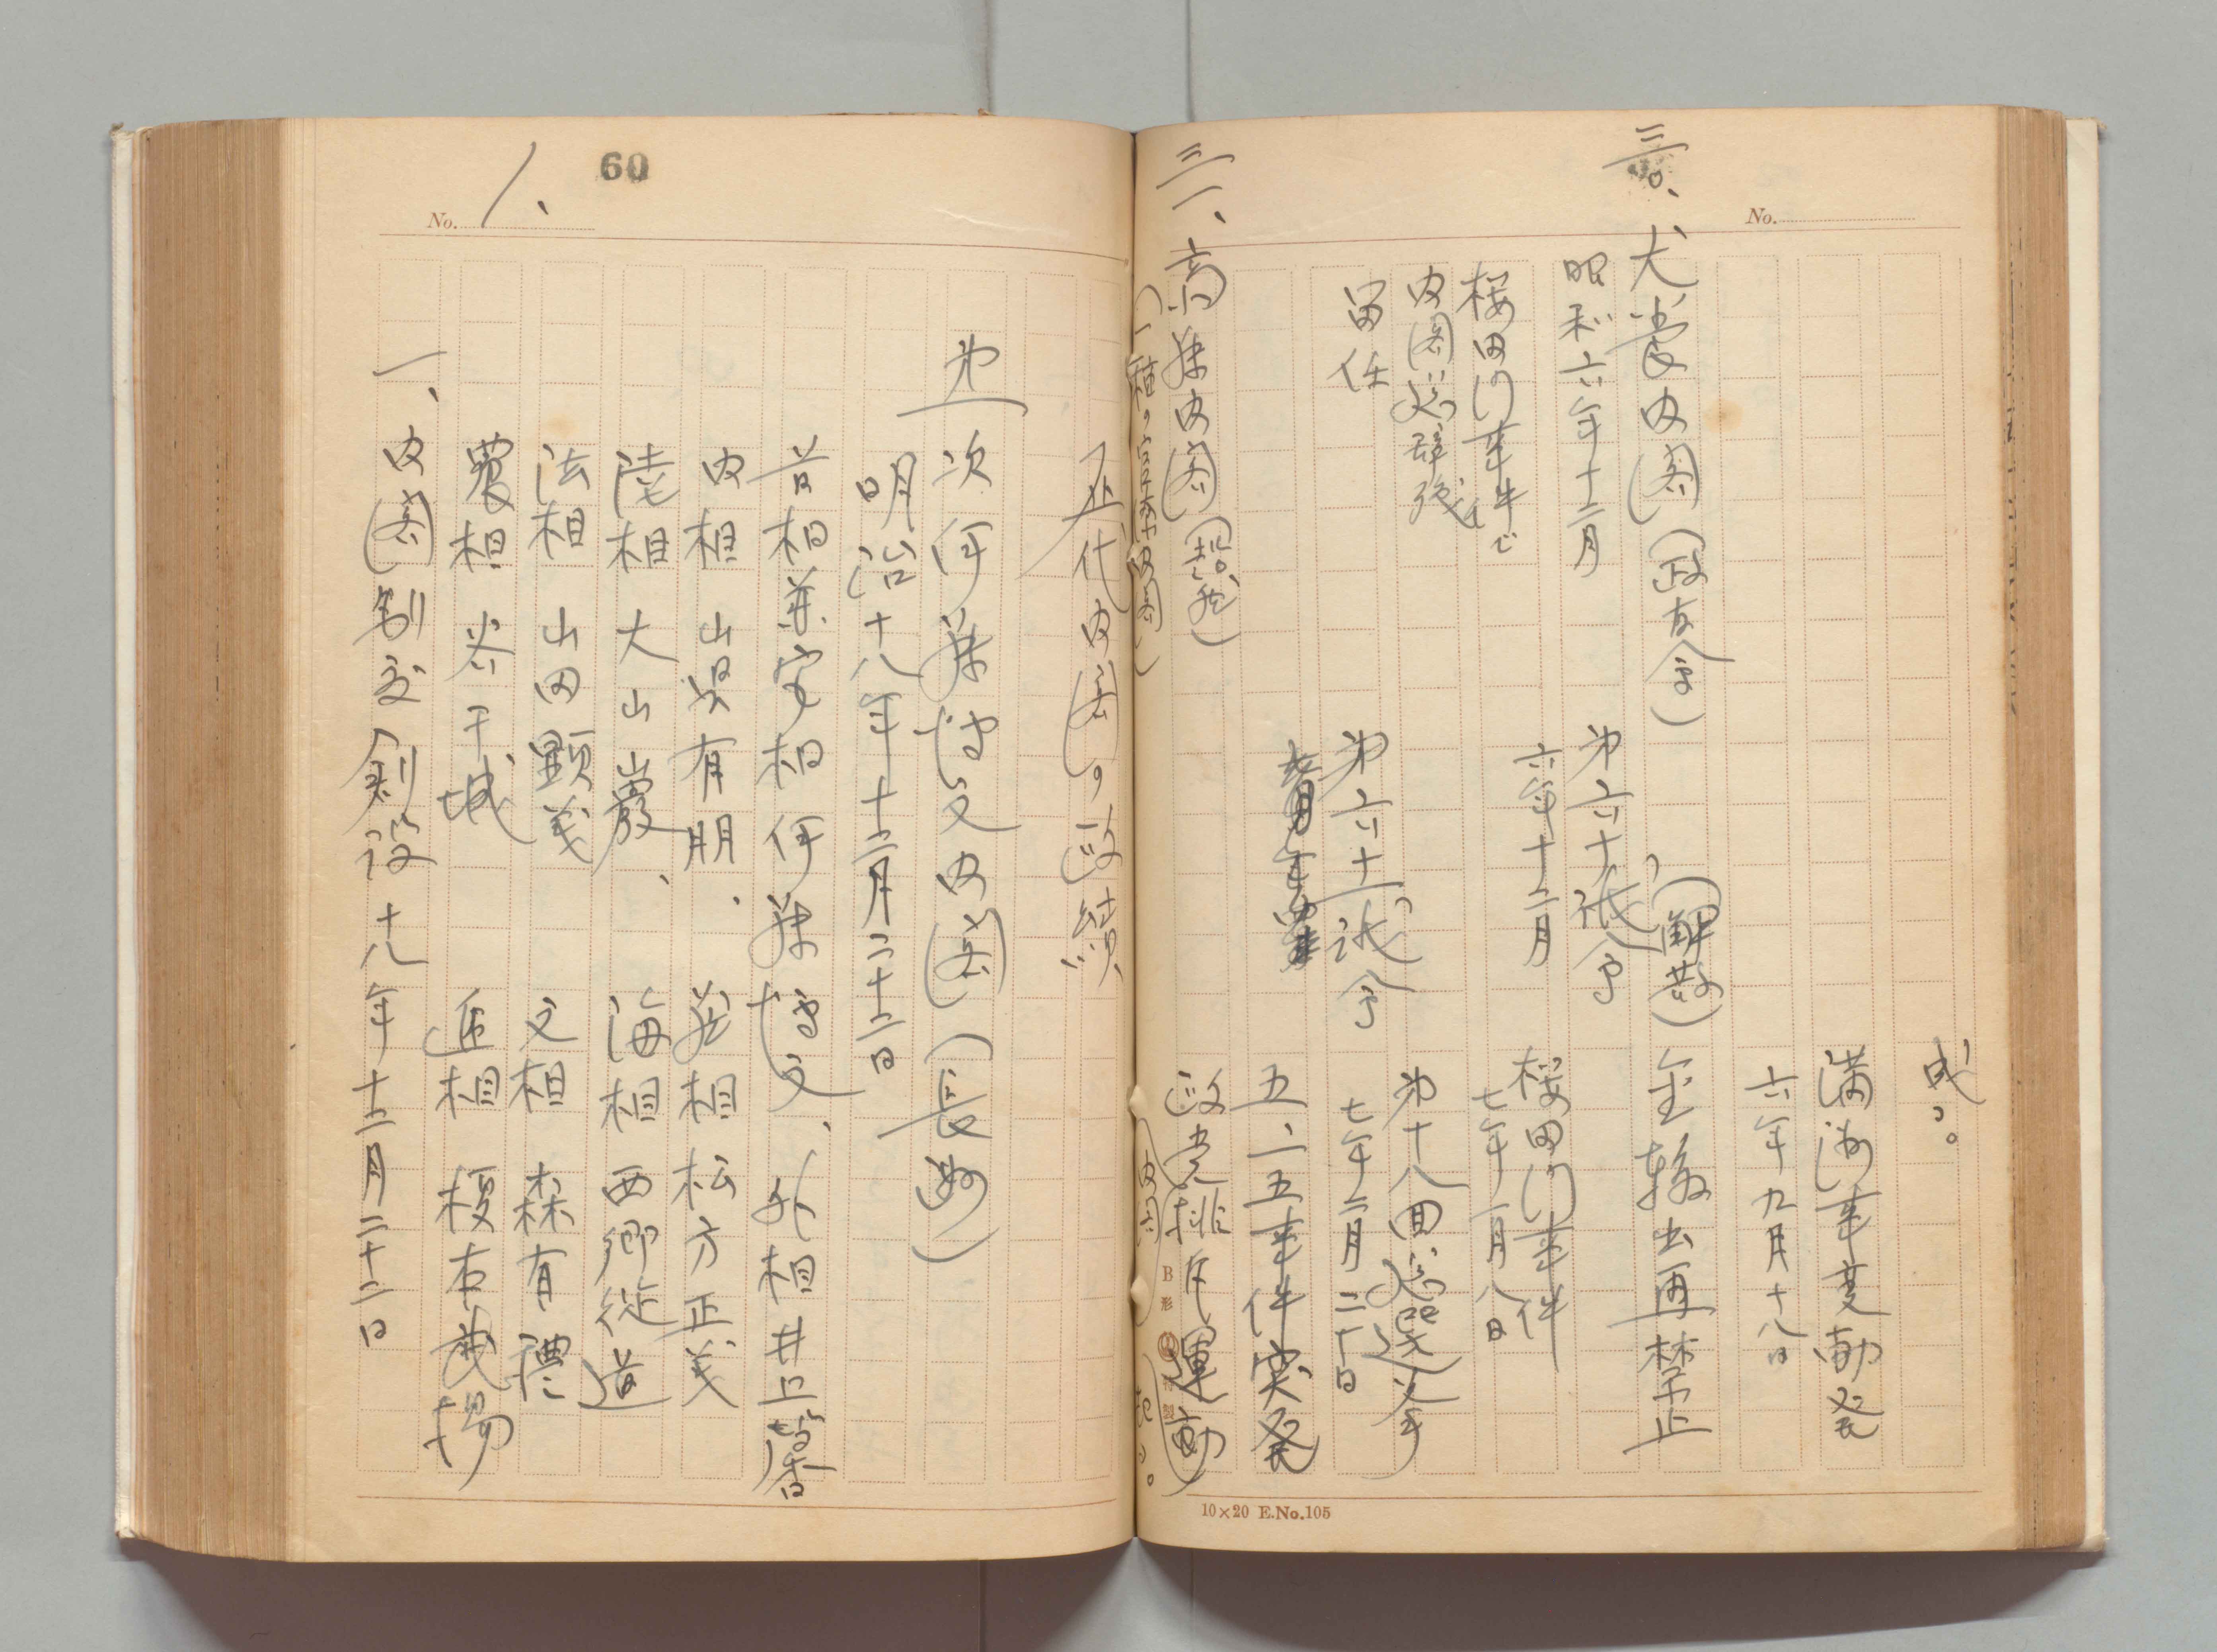 No.
成る。
満洲事変勃発
六年九月十八日
三〇、犬養内閣(政友会)
(解散)
金輸出再禁止
昭和六年十二月
第六十議会
六年十二月
桜田門事件で
内閣総辞職
留任
桜田門事件
七年一月八日
第六十一議会
第十八回総選挙
七年二月二十日
五、一五事件突発
三一、斎藤内閣(超然)
政党排斥運動
10×20 E.No.105
60
No. 1、
歴代内閣の政績
第一次伊藤博文内閣(長州)
明治十八年十二月二十二日
首相兼宮相 伊藤博文、 外相 井上馨
内相 山県有朋、 蔵相 松方正義
陸相 大山巌、 海相 西郷従道
法相 山田顕義 文相 森有禮
農相 谷干城 逓相 榎本武揚
一、内閣制度創設 十八年十二月二十二日